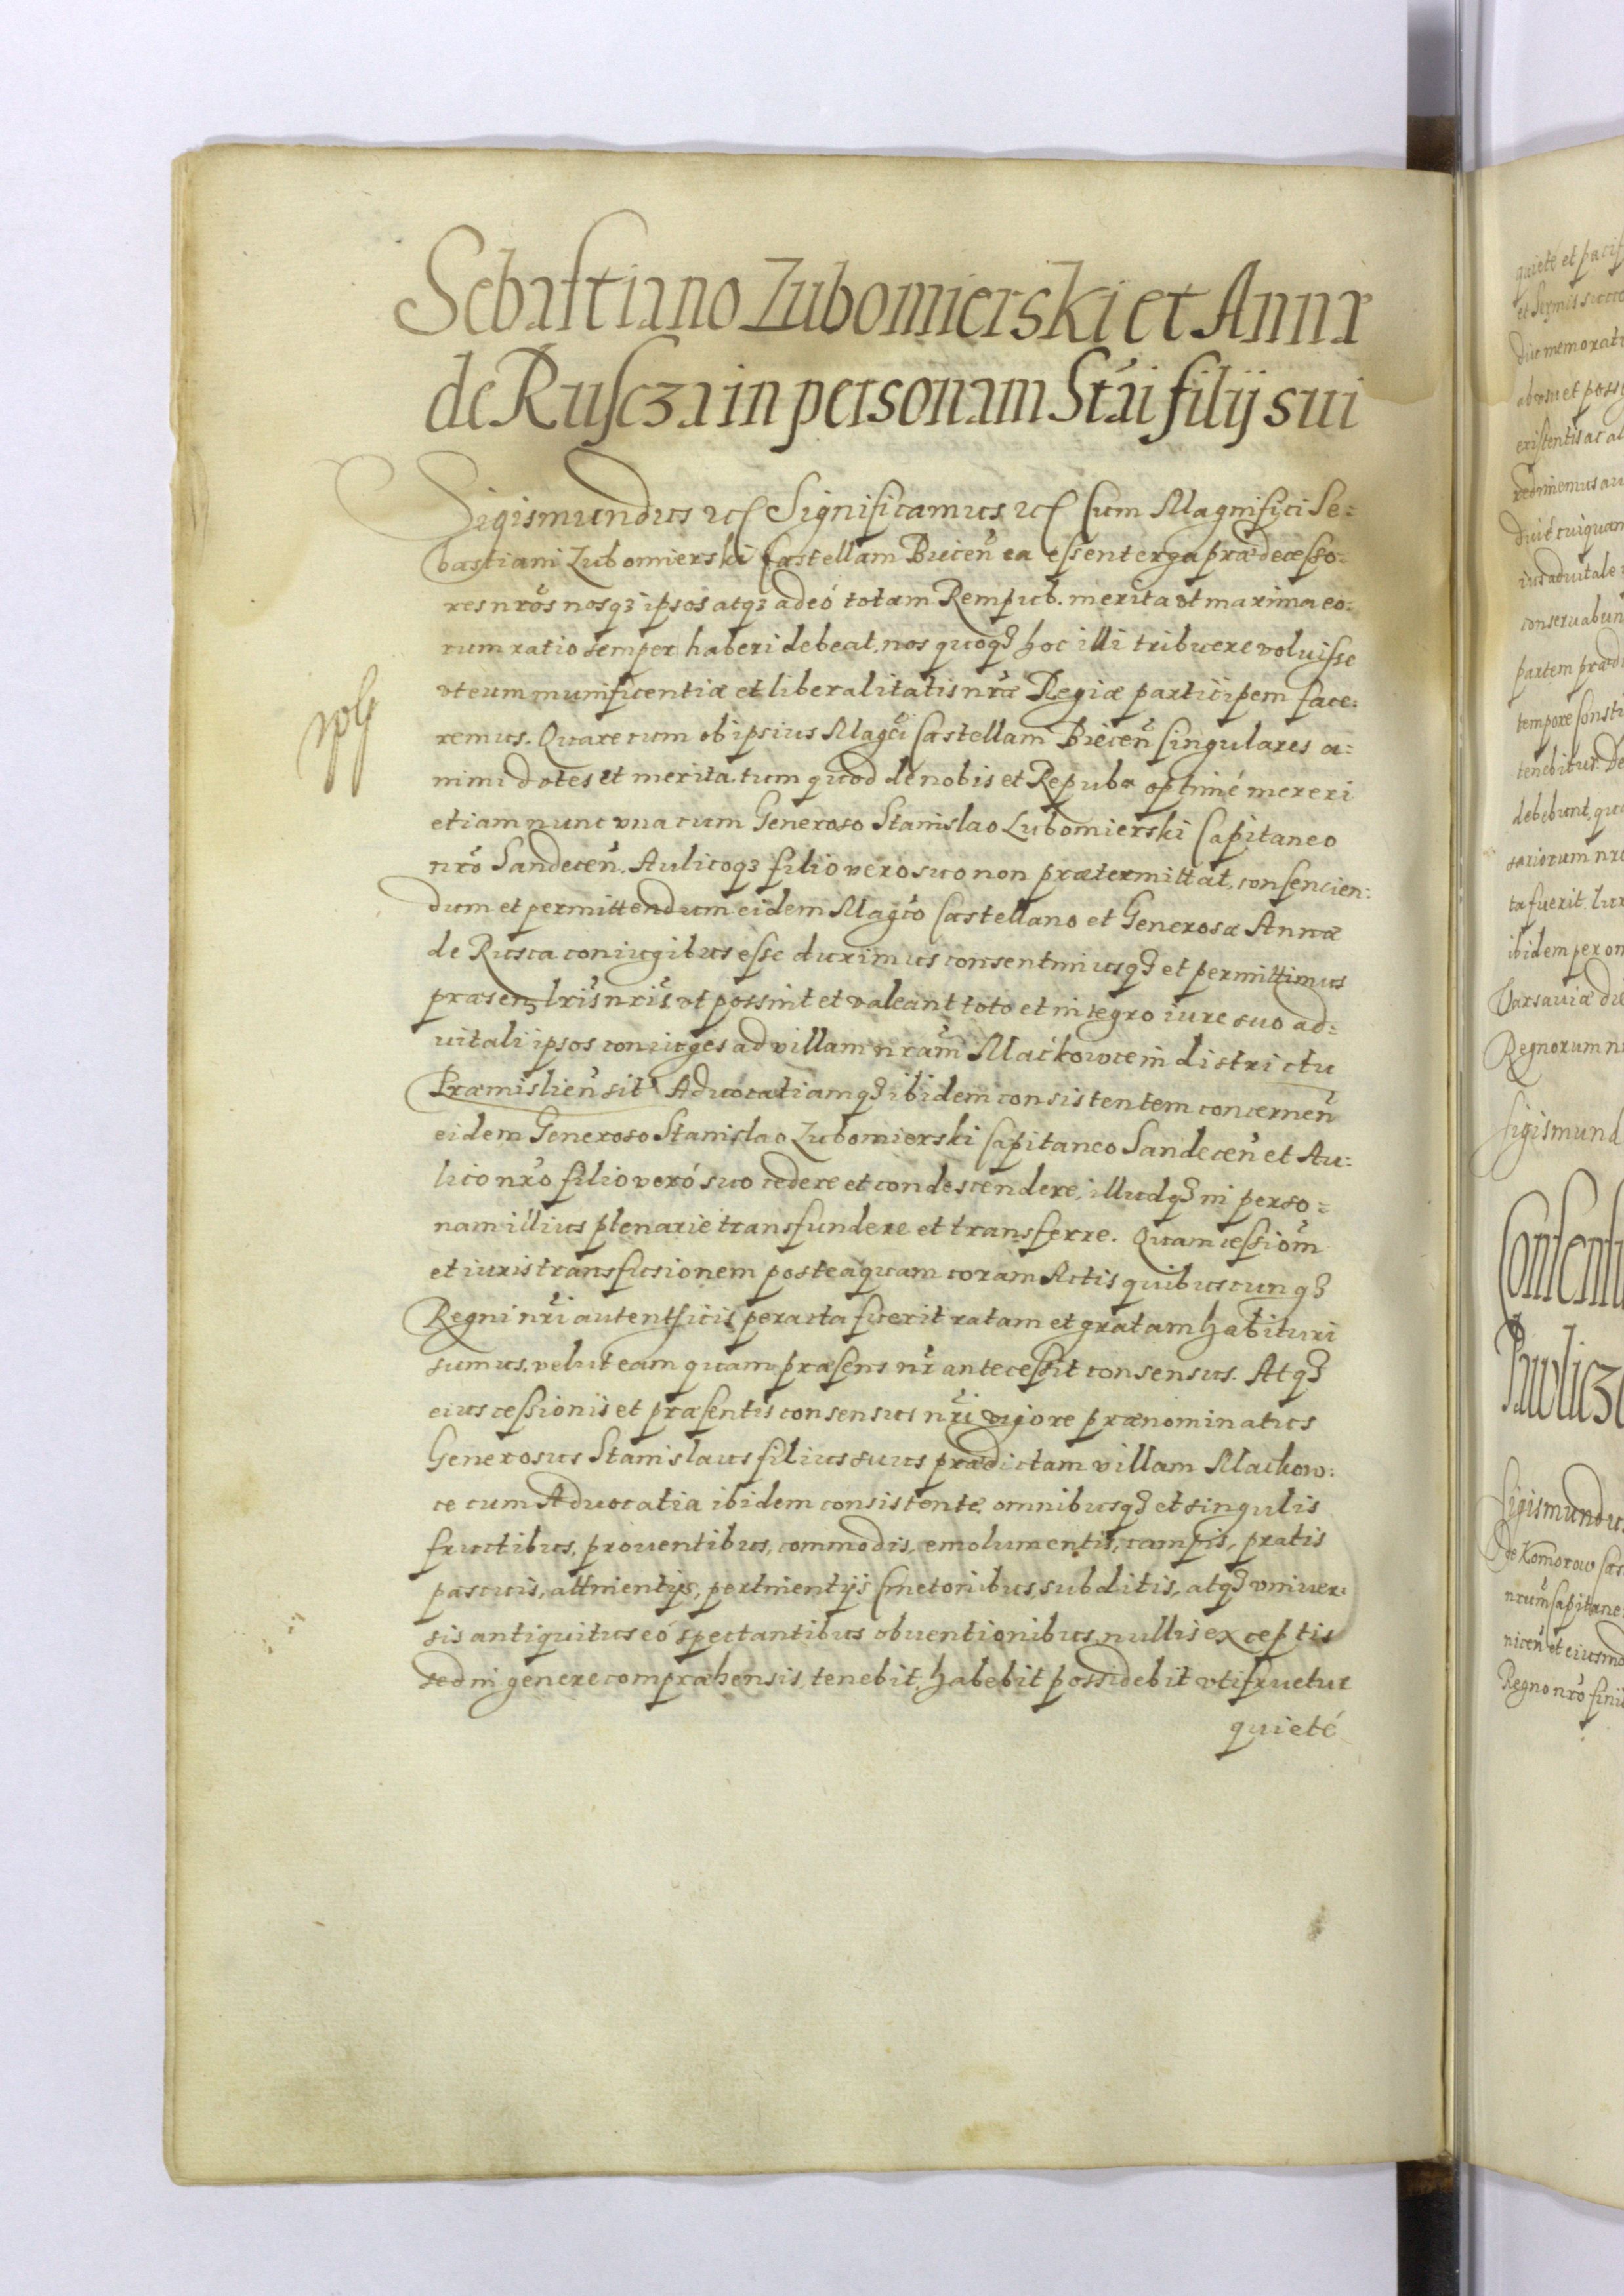 Sebastiano Lubomierski et Annæ
de Ruscza in personam Stai filij sui
Sigismundus etc Significamus etc Cum Magnifici Se=
bastiani Lubomierski Castellani Biecen̄ ea essent erga prædecesso=
res nr̄os nosq3 ipsos atq3 adeó totam Rempub. merita vt maxima eo=
rum ratio semper haberi debeat. nos quoq3 hoc illi tribuere voluisse
vt eum munificentiæ et liberalitatis nr̄æ Regiæ participem face=
remus. Quare cum ob ipsius Magci Castellani Biecen̄ singulares a=
nimi dotes et merita. tum quod de nobis et Repuba optimé mereri
etiam nunc vna cum Generoso Stanislao Lubomierski Capitaneo
nr̄o Sandecen̄. Aulicoq3 filio vero suo non prætermittat, consencien=
dum et permittendum eidem Magco Castellano et Generosæ Annæ
de Rusca coniugibus esse duximus consentimusq3 et permittimus
præsen̄ lr̄is nr̄is, vt possint et valeant toto et integro iure suo ad=
uitali ipsos coniuges ad villam nr̄am Maćkowce in districtu
Præmislien̄ sit Aduocatiamq3 ibidem consistentem concernen̄
eidem Generoso Stanislao Lubomierski Capitaneo Sandecen̄ et Au=
lico nr̄o filio veró suo cedere et condescendere, illudq3 in perso=
nam illius plenarie transfundere et transferre. Quam cessiom̄
et iuris transfusionem posteaquam coram Actis quibuscunq3
Regni nr̄i autenticis peracta fuerit ratam et gratam habituri
sumus. velut eam quam præsens nr̄ antecessit consensus. Atq3
eius cessionis et præsentis consensus nr̄i vigore prænominatus
Generosus Stanislaus filius suus prædictam villam Mackow=
ce cum Aduocatia ibidem consistente. omnibusq3 et singulis
fructibus, prouentibus, commodis, emolumentis, campis, pratis
pascuis, attinentijs, pertinentijs Cmetonibus, subditis, atq3 vniuer=
sis antiquitus eó spectantibus obuentionibus, nullis exceptis
sed in genere compræhensis, tenebit, habebit possidebit vtifruetur
quieté